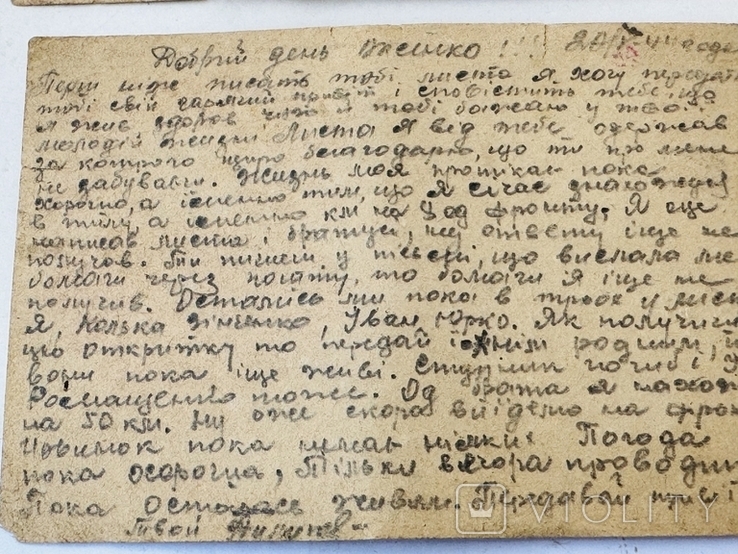 Добрий день Женичко!!! 20/IV-44 года
Перш ніж писать тобі листа я хочу передать
тобі свій гарячий привіт і сповістить тебе, що
я жив здоров чого й тобі бажаю у твоій
молодій жизні. Листа я від тебе одержав
за которого щиро благодарю, що ти про мене
не забуваєш. Жизнь моя протікає пока
хорошо, а іменно тим, що я січас знахожусь
в тилу, а іменно км на 8 од фронту. Я ще
написав листа і братці, но ответу іще не
получав. Ти пишеш у письмі, що вислала
бомаги через пошту, то бомаги я іще не
получив. Остались ми пока в трьох
Я, Колька Зінченко, Уван Юрко. Як получиш
цю открытку то передай іхнім родним,
вони пока іще живі. Ступник погиб і
тоже. Од брата я нахож
на 50 км. Ну оже скоро виідемо на фрон
Новинок пока немає ніяких. Погода
пока хороша, тільки вчора
Пока остаюсь живим. Передавай приві
Твой
VIOLITY